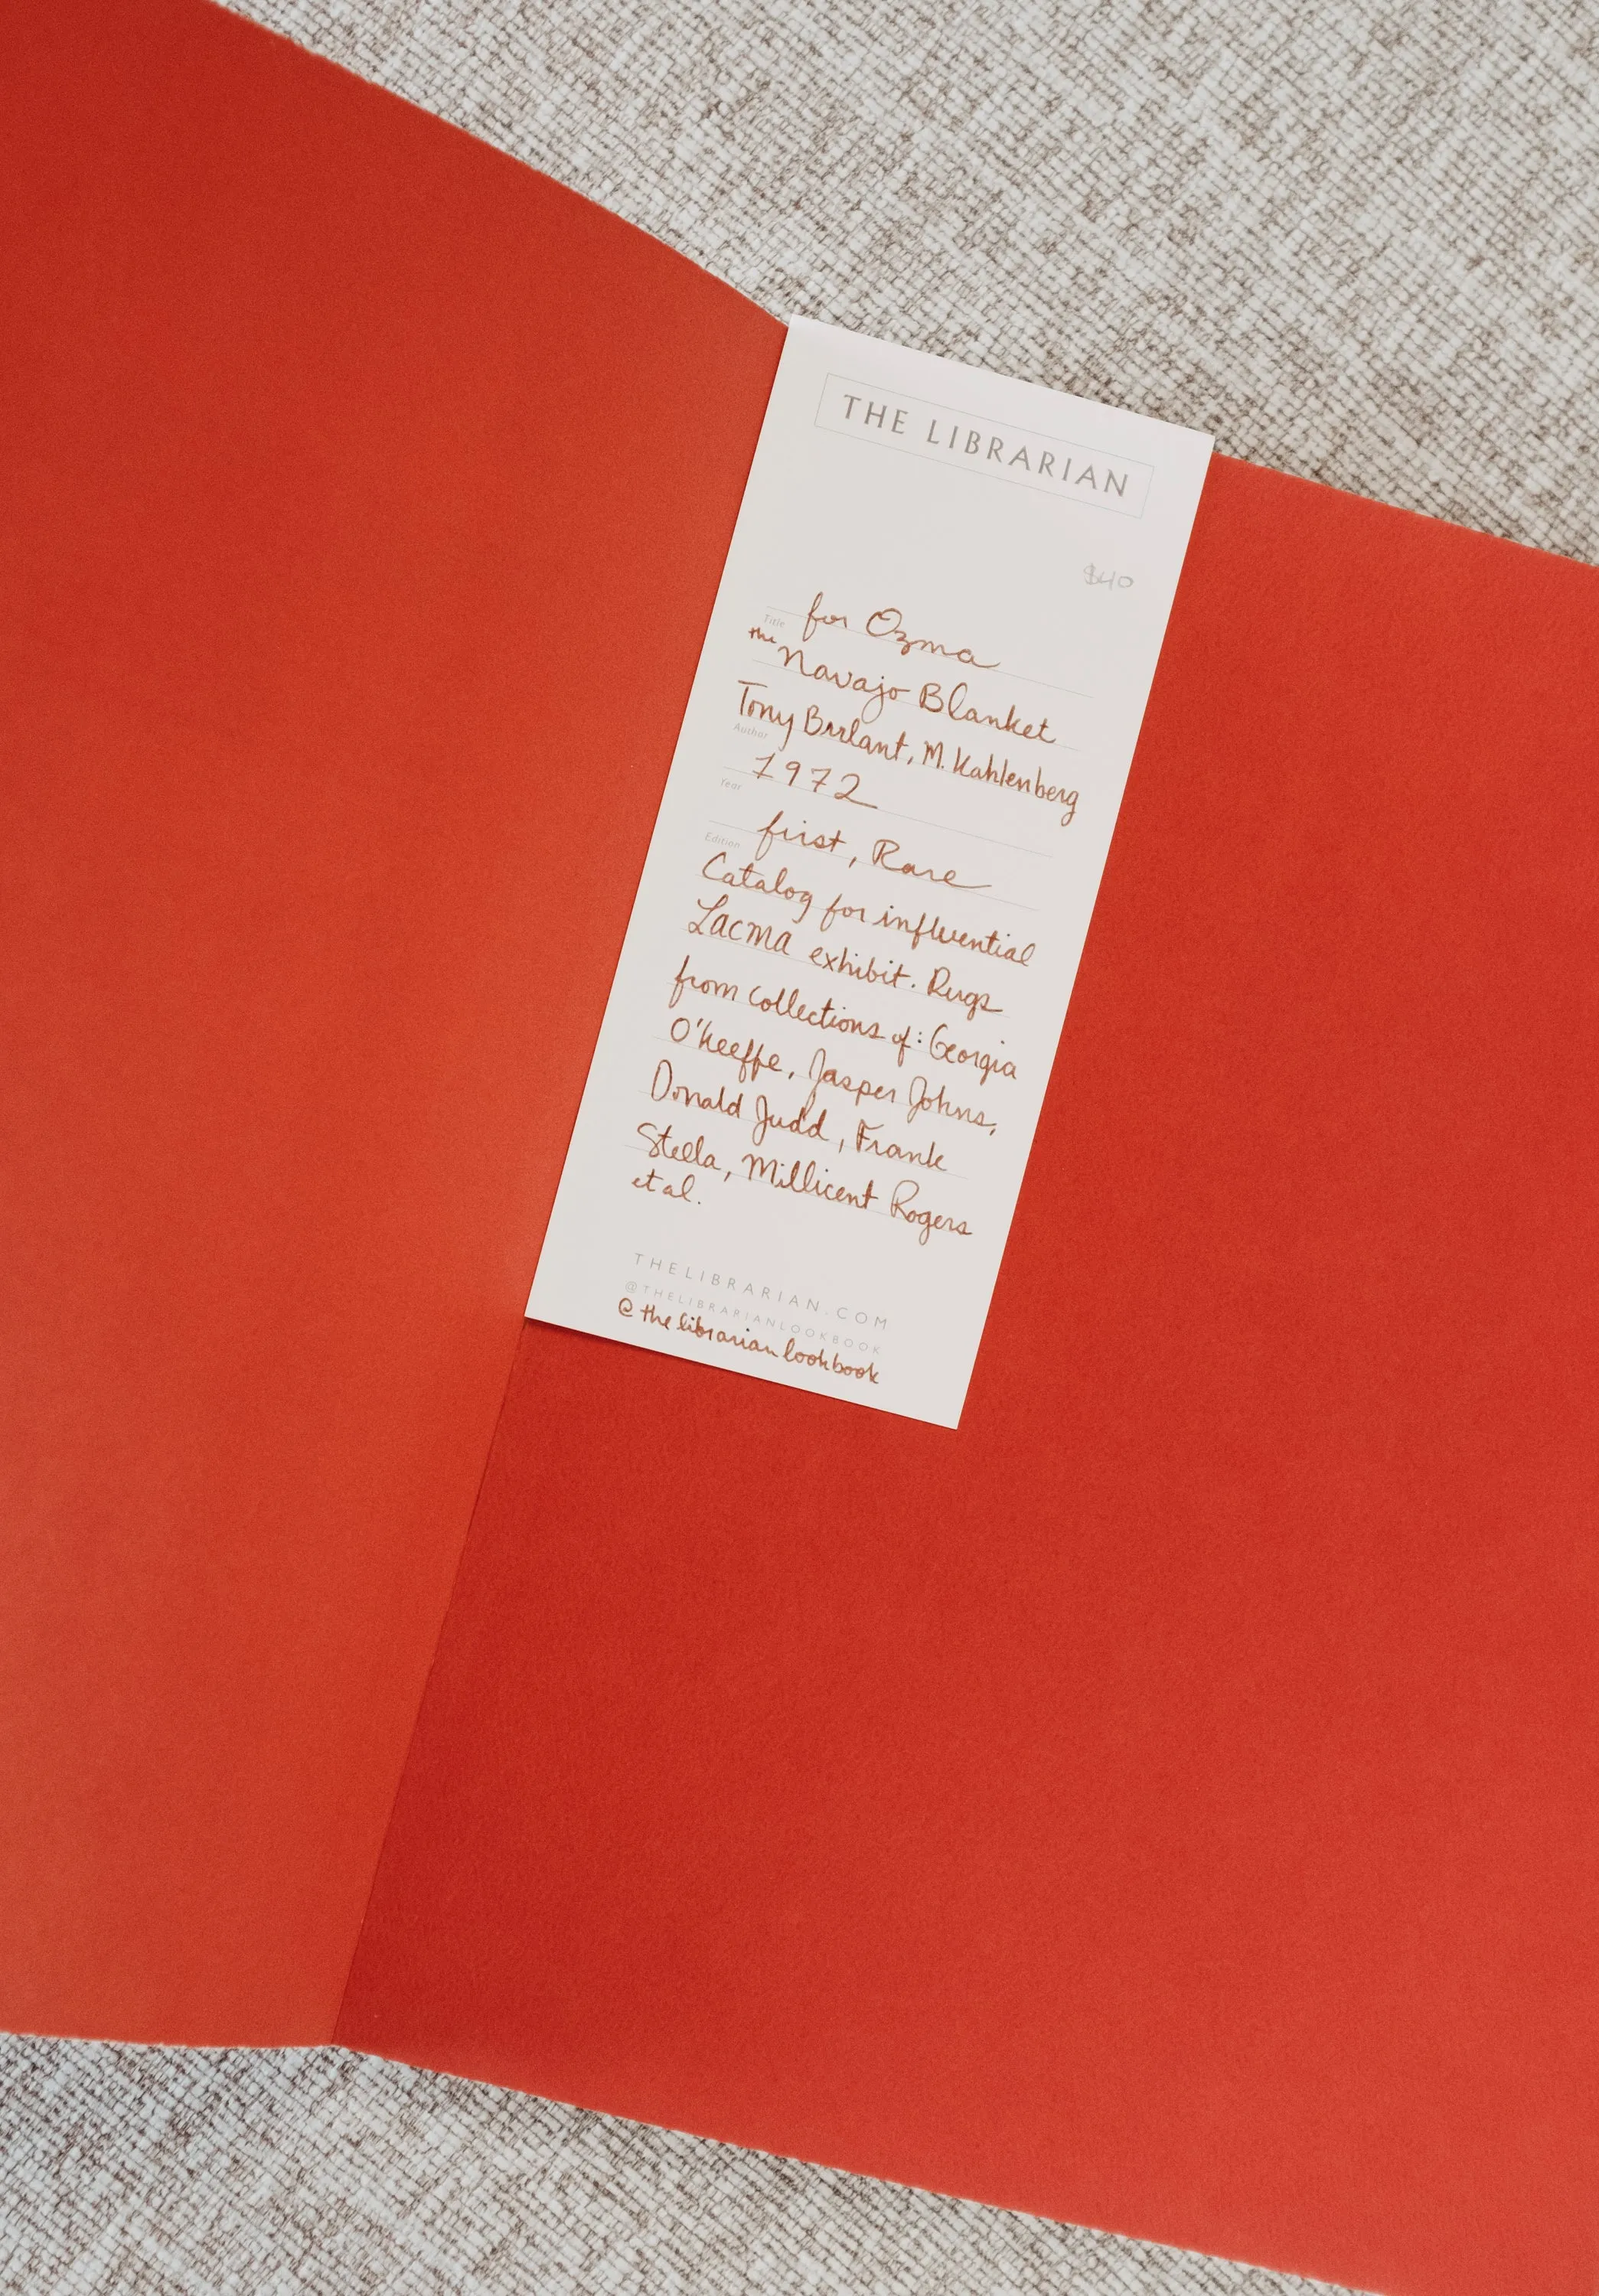 THE LIBRARIAN
$40
Title for Ozma
the Navajo Blanket
Tony Berlant, M. Kahlenberg
Author
1972
Year
first, Rare
Edition
Catalog for influential
Lacma exhibit. Rugs
from collections of: Georgia
O'Keeffe, Jasper Johns,
Donald Judd, Frank
Stella, Millicent Rogers
et al.
THELIBRARIAN.COM
@THELIBRARIANLOOKBOOK
@thelibrarianlookbook